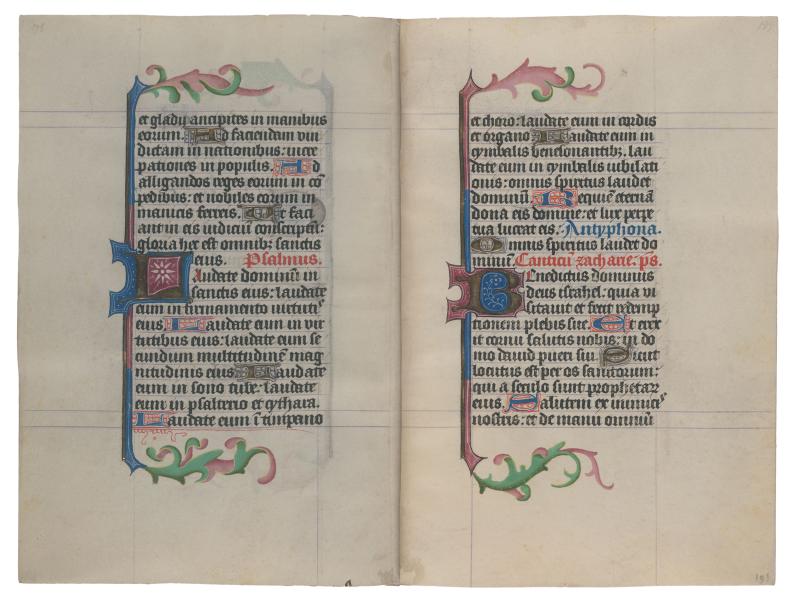 et gladii ancipites in manibus
eorum. Ad faciendam vin
dictam in nationibus: incre
pationes in populis. Ad
alligandos reges eorum in cō
pedibus: et nobiles eorum in
manicis ferreis. Ut faci
ant in eis iudiciū conscriptū:
gloria hec est omnibꝫ sanctis
eius. Psalmus.
Laudate dominū in
sanctis eius: laudate
eum in firmamento virtutꝭ
eius Laudate eum in vir
tutibus eius: laudate eum se
cundum multitudinē mag
nitudinis eius Laudate
eum in sono tube: laudate
eum in psalterio et cythara.
Laudate eum ī timpano
et choro: laudate eum in cordis
et organo Laudate eum in
cymbalis benesonantibꝫ. lau
date eum in cymbalis iubilati
onis: omnis spiritus laudet
dominū Requiē eternā
dona eis domine: et lux perpe
tua luceat eis. Antyphona.
Omnis spiritus laudet do
minū. Canticū zacharie. ps.
Benedictus dominus
deus israhel: quia vi
sitavit et fecit redemp
tionem plebis sue Et erex
it cornu salutis nobis: in do
mo david pueri sui Sicut
locutus est per os sanctorum:
qui a seculo sunt prophetarꝫ
eius. Salutem ex inimicꝭ
nostris: et de manu omniū
193